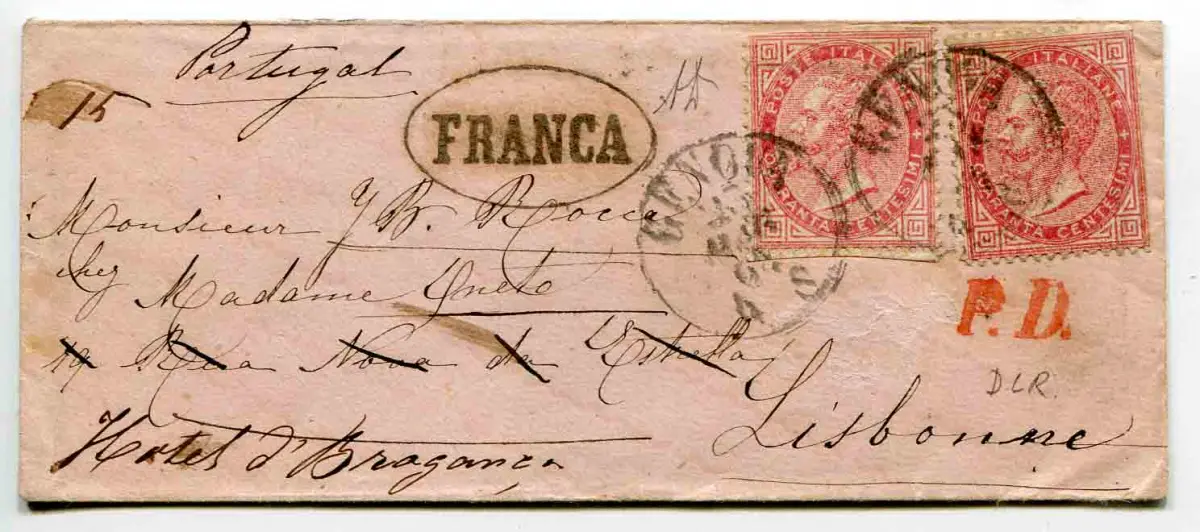 Portugal
15
FRANCA
POSTE ITALIANE
QUARANTA CENTESIMI
POSTE ITALIANE
QUARANTA CENTESIMI
GENOVA
GENOVA
P.D.
Monsieur J B. Rocca
chez Madame Oneto
19 Rua Nova da Estrella
Lisbonne
Hotel d'Bragança
DLR.